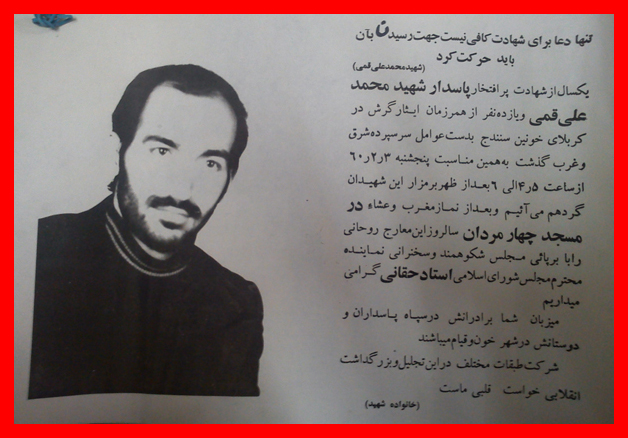 تنها دعا برای شهادت کافی نیست جهت رسیدن بآن
باید حرکت کرد
(شهید محمد علی قمی)
یکسال از شهادت پر افتخار پاسدار شهید محمد
علی قمی ویازده نفر از همرزمان ایثارگرش در
کربلای خونین سنندج بدست عوامل سرسپرده شرق
وغرب گذشت به همین مناسبت پنجشنبه ۶۰ر۲ر۳
از ساعت ۴ر۵ الی ۶ بعد از ظهر برمزار این شهیدان
گردهم می‌آئیم وبعداز نماز مغرب وعشاء در
مسجد چهار مردان سالروز این معارج روحانی
را با برپائی مجلس شکوهمند وسخنرانی نماینده
محترم مجلس شورای اسلامی استاد حقانی گرامی
میداریم
میزبان شما برادرانش درسپاه پاسداران و
دوستانش درشهر خون وقیام میباشند
شرکت طبقات مختلف دراین تجلیل و بزرگداشت
انقلابی خواست قلبی ماست
(خانواده شهید)